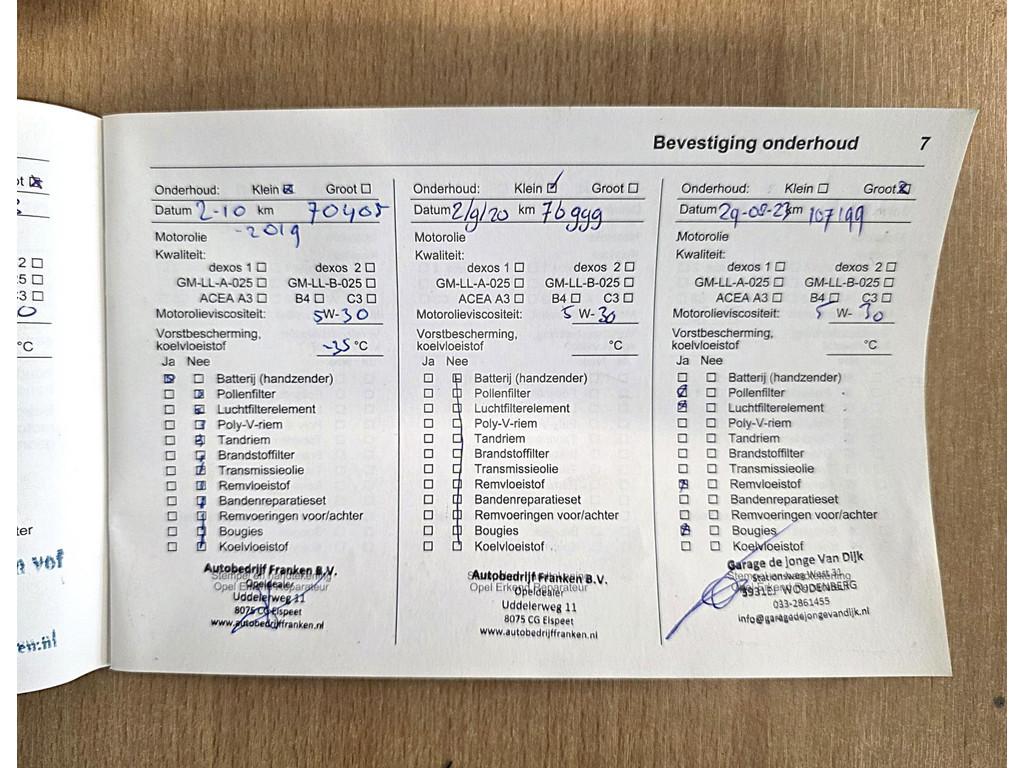 Bevestiging onderhoud 7
Onderhoud: Klein Groot
Datum 2-10 km 70405
-2019
Motorolie
Kwaliteit:
dexos 1 dexos 2
GM-LL-A-025 GM-LL-B-025
ACEA A3 B4 C3
Motorolieviscositeit: 5W-30
Vorstbescherming,
koelvloeistof -35 °C
Ja Nee
Batterij (handzender)
Pollenfilter
Luchtfilterelement
Poly-V-riem
Tandriem
Brandstoffilter
Transmissieolie
Remvloeistof
Bandenreparatieset
Remvoeringen voor/achter
Bougies
Koelvloeistof
Autobedrijf Franken B.V.
Stempel en handtekening
Opeldealer
Opel Erkend Reparateur
Uddelerweg 11
8075 CG Elspeet
www.autobedrijffranken.nl
Onderhoud: Klein Groot
Datum 2/9/20 km 76999
Motorolie
Kwaliteit:
dexos 1 dexos 2
GM-LL-A-025 GM-LL-B-025
ACEA A3 B4 C3
Motorolieviscositeit: 5 W-30
Vorstbescherming,
koelvloeistof °C
Ja Nee
Batterij (handzender)
Pollenfilter
Luchtfilterelement
Poly-V-riem
Tandriem
Brandstoffilter
Transmissieolie
Remvloeistof
Bandenreparatieset
Remvoeringen voor/achter
Bougies
Koelvloeistof
Autobedrijf Franken B.V.
Opeldealer
Opel Erkend Reparateur
Uddelerweg 11
8075 CG Elspeet
www.autobedrijffranken.nl
Onderhoud: Klein Groot
Datum 29-08-23 km 107199
Motorolie
Kwaliteit:
dexos 1 dexos 2
GM-LL-A-025 GM-LL-B-025
ACEA A3 B4 C3
Motorolieviscositeit: 5 W-30
Vorstbescherming,
koelvloeistof °C
Ja Nee
Batterij (handzender)
Pollenfilter
Luchtfilterelement
Poly-V-riem
Tandriem
Brandstoffilter
Transmissieolie
Remvloeistof
Bandenreparatieset
Remvoeringen voor/achter
Bougies
Koelvloeistof
Garage de Jonge Van Dijk
Stationsweg West 31
WOUDENBERG
033-2861455
info@garagedejongevandijk.nl
°C
vof
en.nl